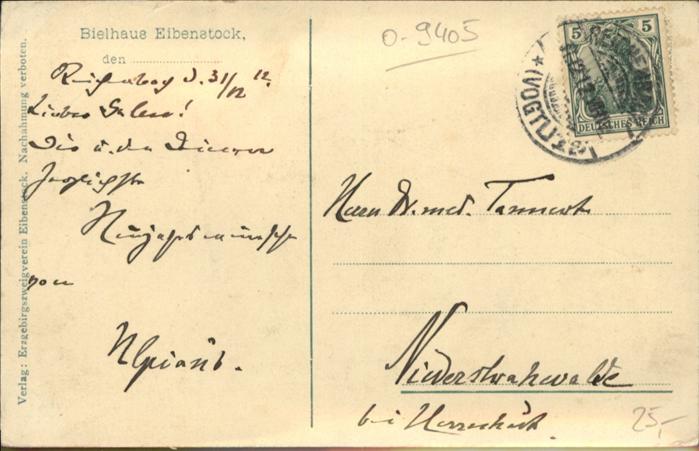 Bielhaus Eibenstock,
den
Reichenbach d. 31/12 12.
Lieber
Dir u. den Deinen
herzlichste
Neujahrswünsche
von
Verlag: Erzgebirgszweigverein Eibenstock. Nachahmung verboten.
0-9405
5 5
DEUTSCHES REICH
(VOGTL.)
Herrn Dr. med. Tannert
Niederstrahwalde
bei Herrnhut.
25,-